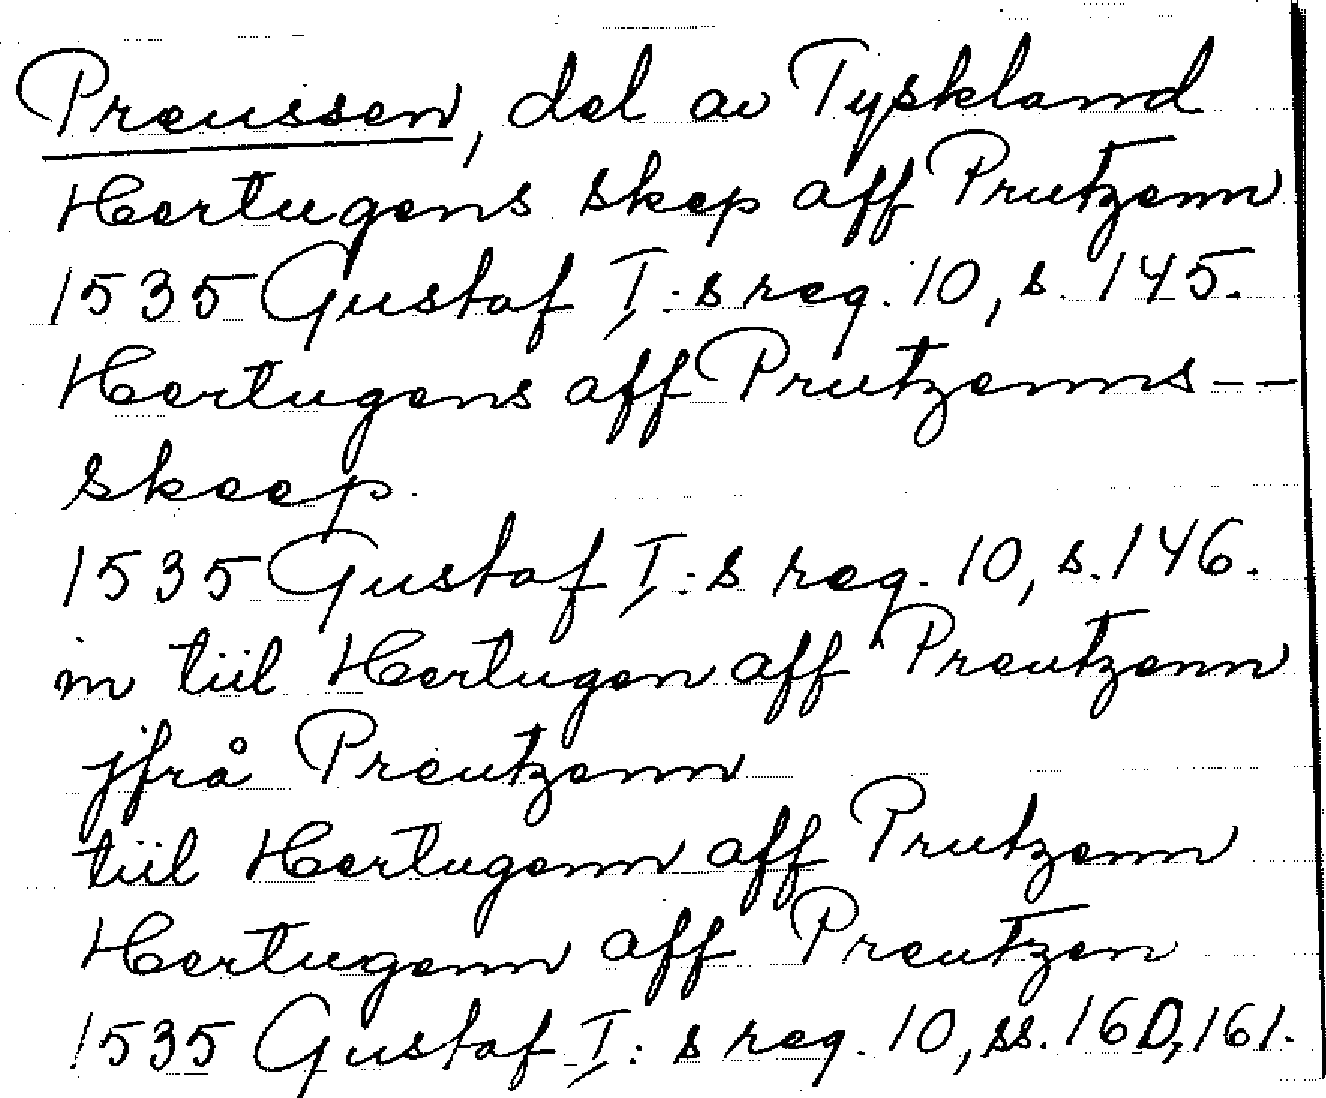 Preussen, del av Tyskland
Hertugens skep aff Prutzenn
1535 Gustaf I:s reg. 10, s. 145.
Hertugens aff Prutzenns--
skeep.
1535 Gustaf I:s reg. 10, s. 146.
in tiil Hertugen aff Preutzenn
jfrå Preutzenn
tiil Hertugenn aff Prutzenn
Hertugenn aff Preutzen
1535 Gustaf I:s reg. 10, ss. 160, 161.